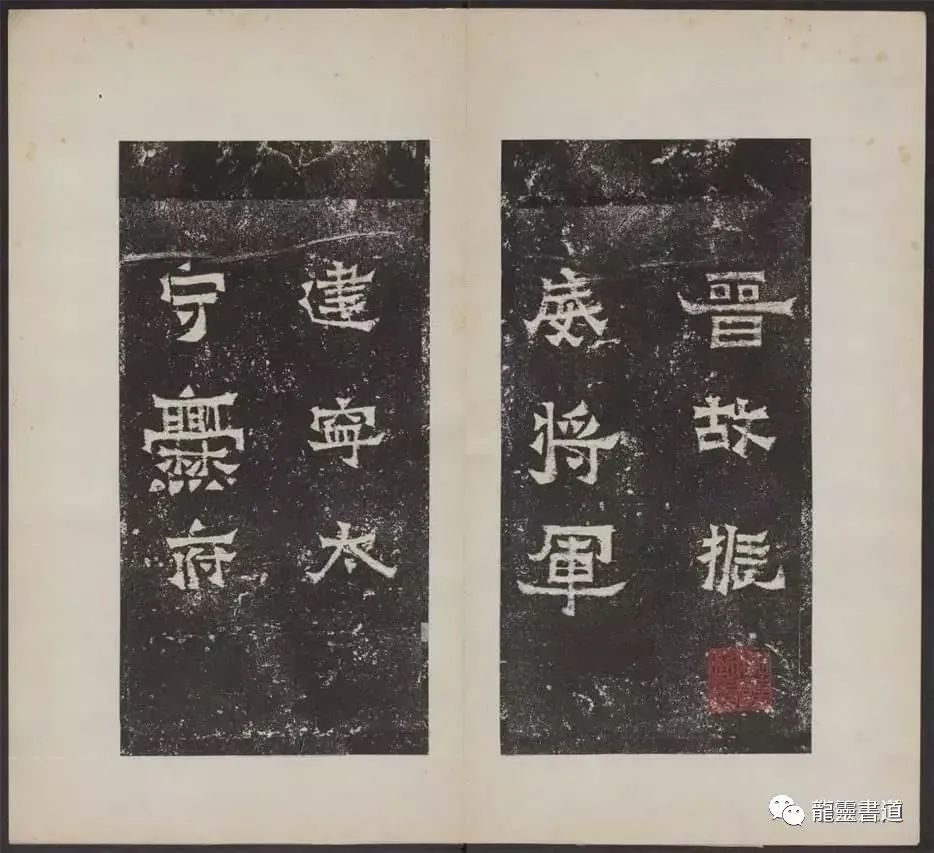 晋故振
威将軍
建寧太
守爨府
龍靈書道